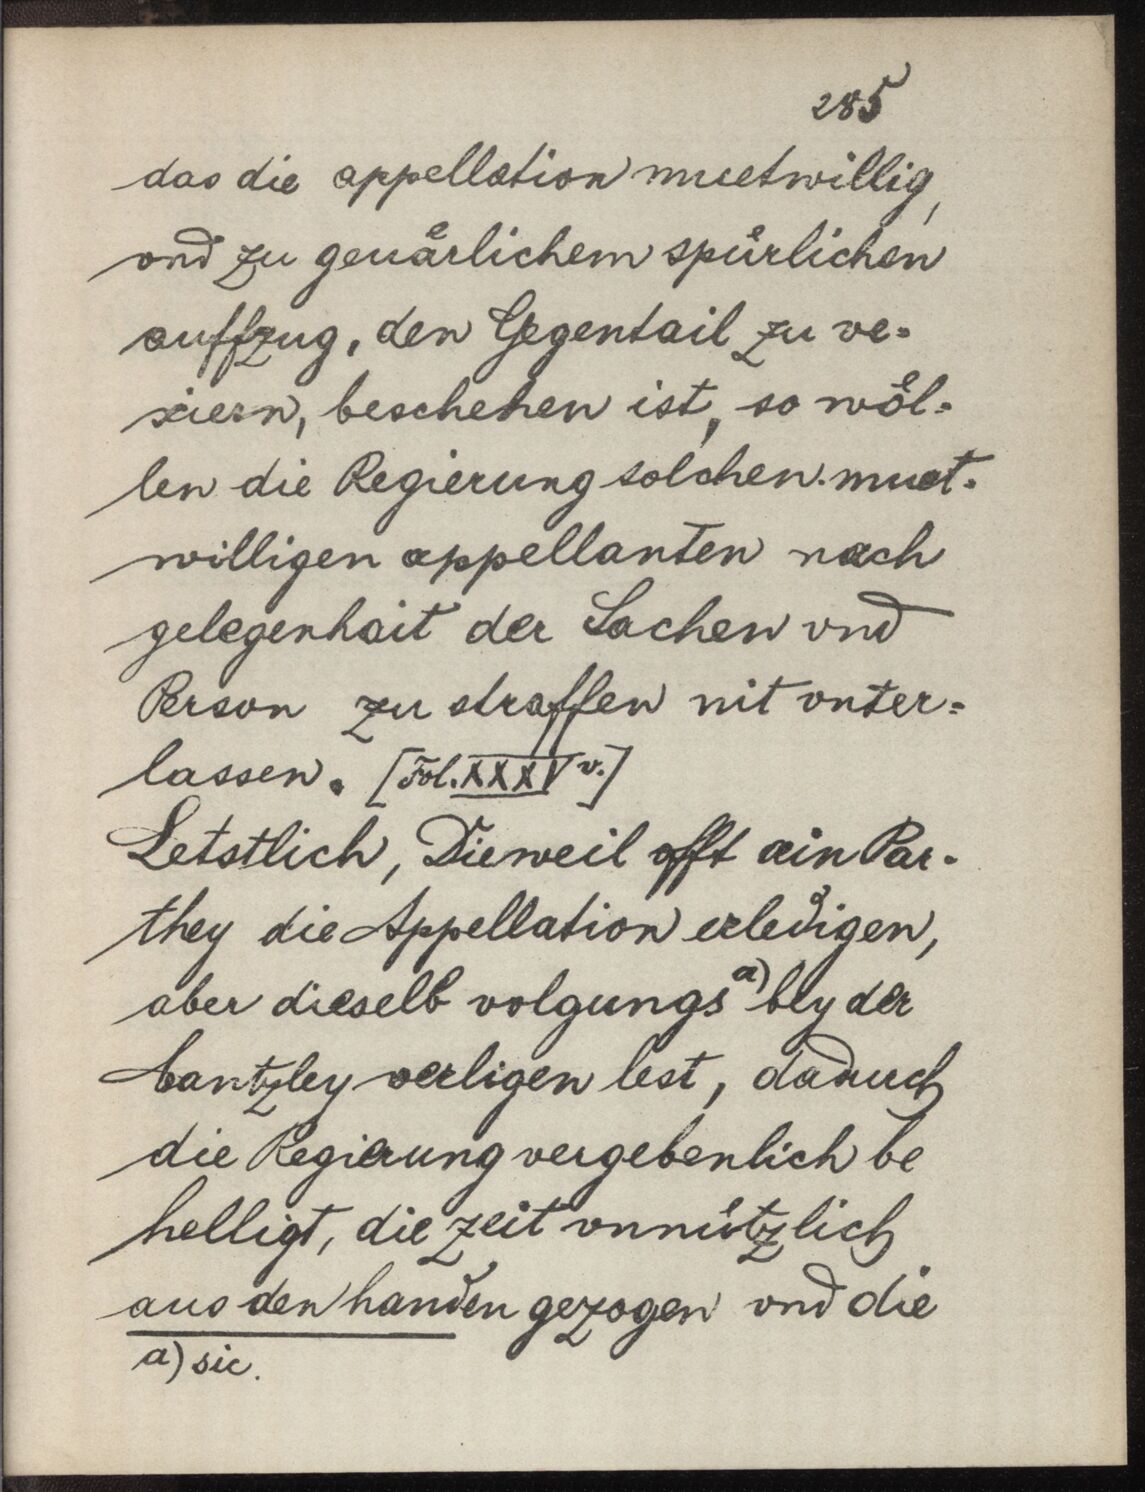 285
das die appellation muetwillig,
vnd zu geuaͤrlichem spuͤrlichen
auffzug, den Gegentail zu ve=
xiern, beschehen ist, so woͤl=
len die Regierung solchen muet=
willigen appellanten nach
gelegenhait der Sachen vnd
Person zu straffen nit vnter=
lassen. [Fol. XXXV v.]
Letstlich, Dieweil offt ain Par=
they die Appellation erledigen,
aber dieselb volgungs a) bey der
Cantzley verligen lest, daduch
die Regierung vergebenlich be
helligt, die zeit vnnuͤtzlich
aus den handen gezogen vnd die
a) sic.